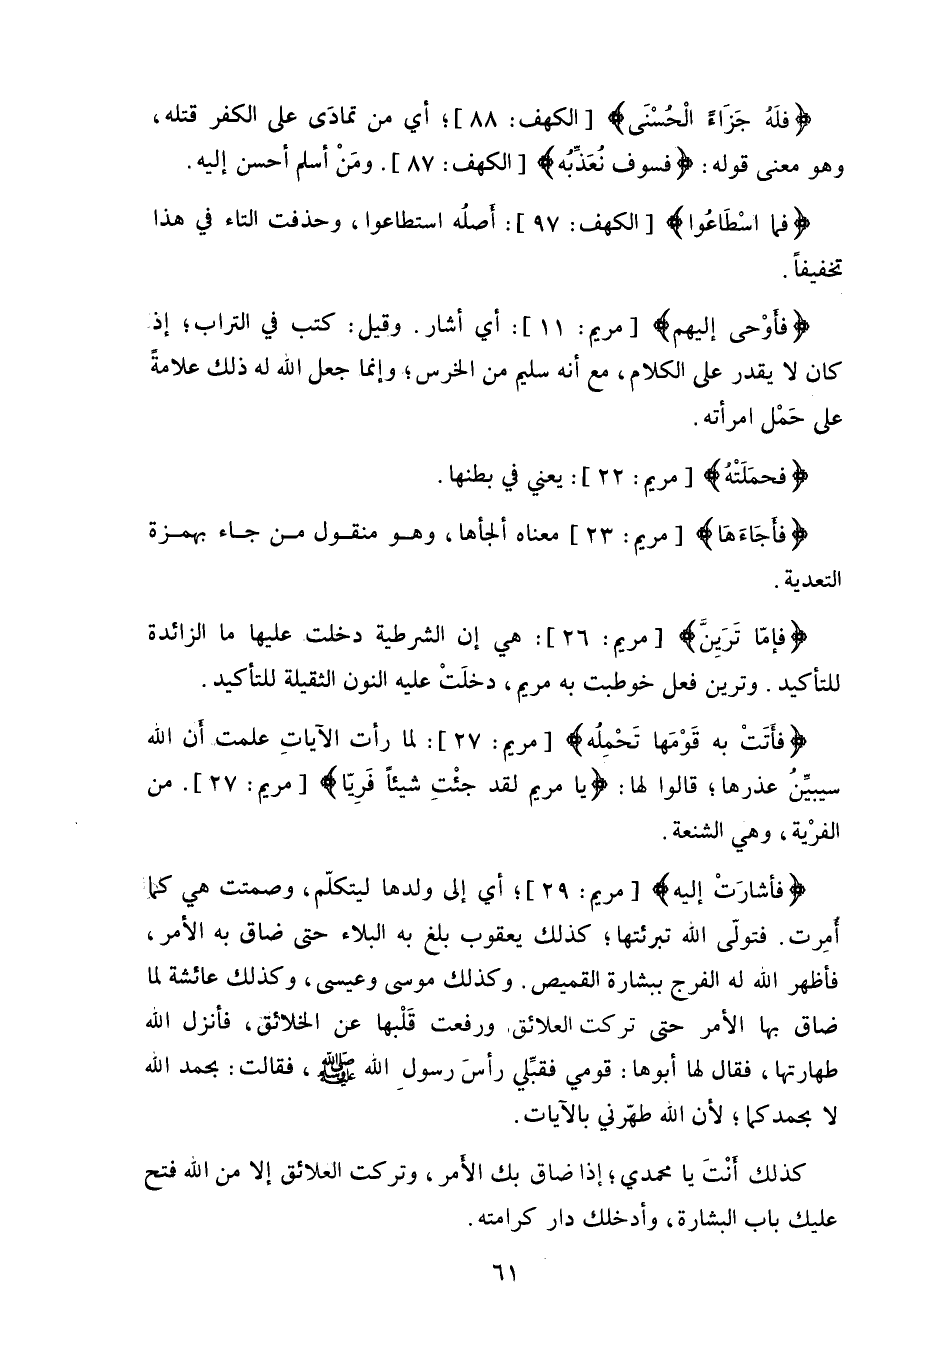 ﴿فلَهُ جَزَاءً الْحُسْنَى﴾ [ الكهف : ٨٨ ] ؛ أي من تمادَى على الكفر قتله ،
وهو معنى قوله : ﴿فسوف نُعَذِّبُه﴾ [ الكهف : ٨٧ ] . ومَنْ أسلم أحسن إليه .
﴿فما اسْطَاعُوا﴾ [ الكهف : ٩٧ ] : أَصلُه استطاعوا ، وحذفت التاء في هذا
تخفيفاً .
﴿فأَوْحى إليهم﴾ [ مريم : ١١ ] : أي أشار . وقيل : كتب في التراب ؛ إذ
كان لا يقدر على الكلام ، مع أنه سليم من الخرس ؛ وإنما جعل الله له ذلك علامةً
على حَمْل امرأته .
﴿فحمَلَتْهُ﴾ [ مريم : ٢٢ ] : يعني في بطنها .
﴿فأَجَاءَهَا﴾ [ مريم : ٢٣ ] معناه ألجأها ، وهو منقول من جاء بهمزة
التعدية .
﴿فإمّا تَرَيِنَّ﴾ [ مريم : ٢٦ ] : هي إن الشرطية دخلت عليها ما الزائدة
للتأكيد . وترين فعل خوطبت به مريم ، دخلَتْ عليه النون الثقيلة للتأكيد .
﴿فأَتَتْ به قَوْمَها تَحْمِلُه﴾ [ مريم : ٢٧ ] : لما رأت الآياتِ علمت أَن الله
سيبيِّنُ عذرها ؛ قالوا لها : ﴿يا مريم لقد جئْتِ شيئاً فَرِيّا﴾ [ مريم : ٢٧ ] . من
الفرْية ، وهي الشنعة .
﴿فأشارَتْ إليه﴾ [ مريم : ٢٩ ] ؛ أي إلى ولدها ليتكلّم ، وصمتت هي كما
أُمِرت . فتولّى الله تبرئتها ؛ كذلك يعقوب بلغ به البلاء حتى ضاق به الأمر ،
فأظهر الله له الفرج ببشارة القميص . وكذلك موسى وعيسى ، وكذلك عائشة لما
ضاق بها الأمر حتى تركت العلائق ورفعت قَلْبها عن الخلائق ، فأنزل الله
طهارتها ، فقال لها أبوها : قومي فقبِّلي رأسَ رسول الله ﷺ ، فقالت : بحمد الله
لا بحمدكما ؛ لأن الله طهّرني بالآيات .
كذلك أَنْتَ يا محمدي ؛ إذا ضاق بك الأَمر ، وتركت العلائق إلا من الله فتح
عليك باب البشارة ، وأدخلك دار كرامته .
٦١